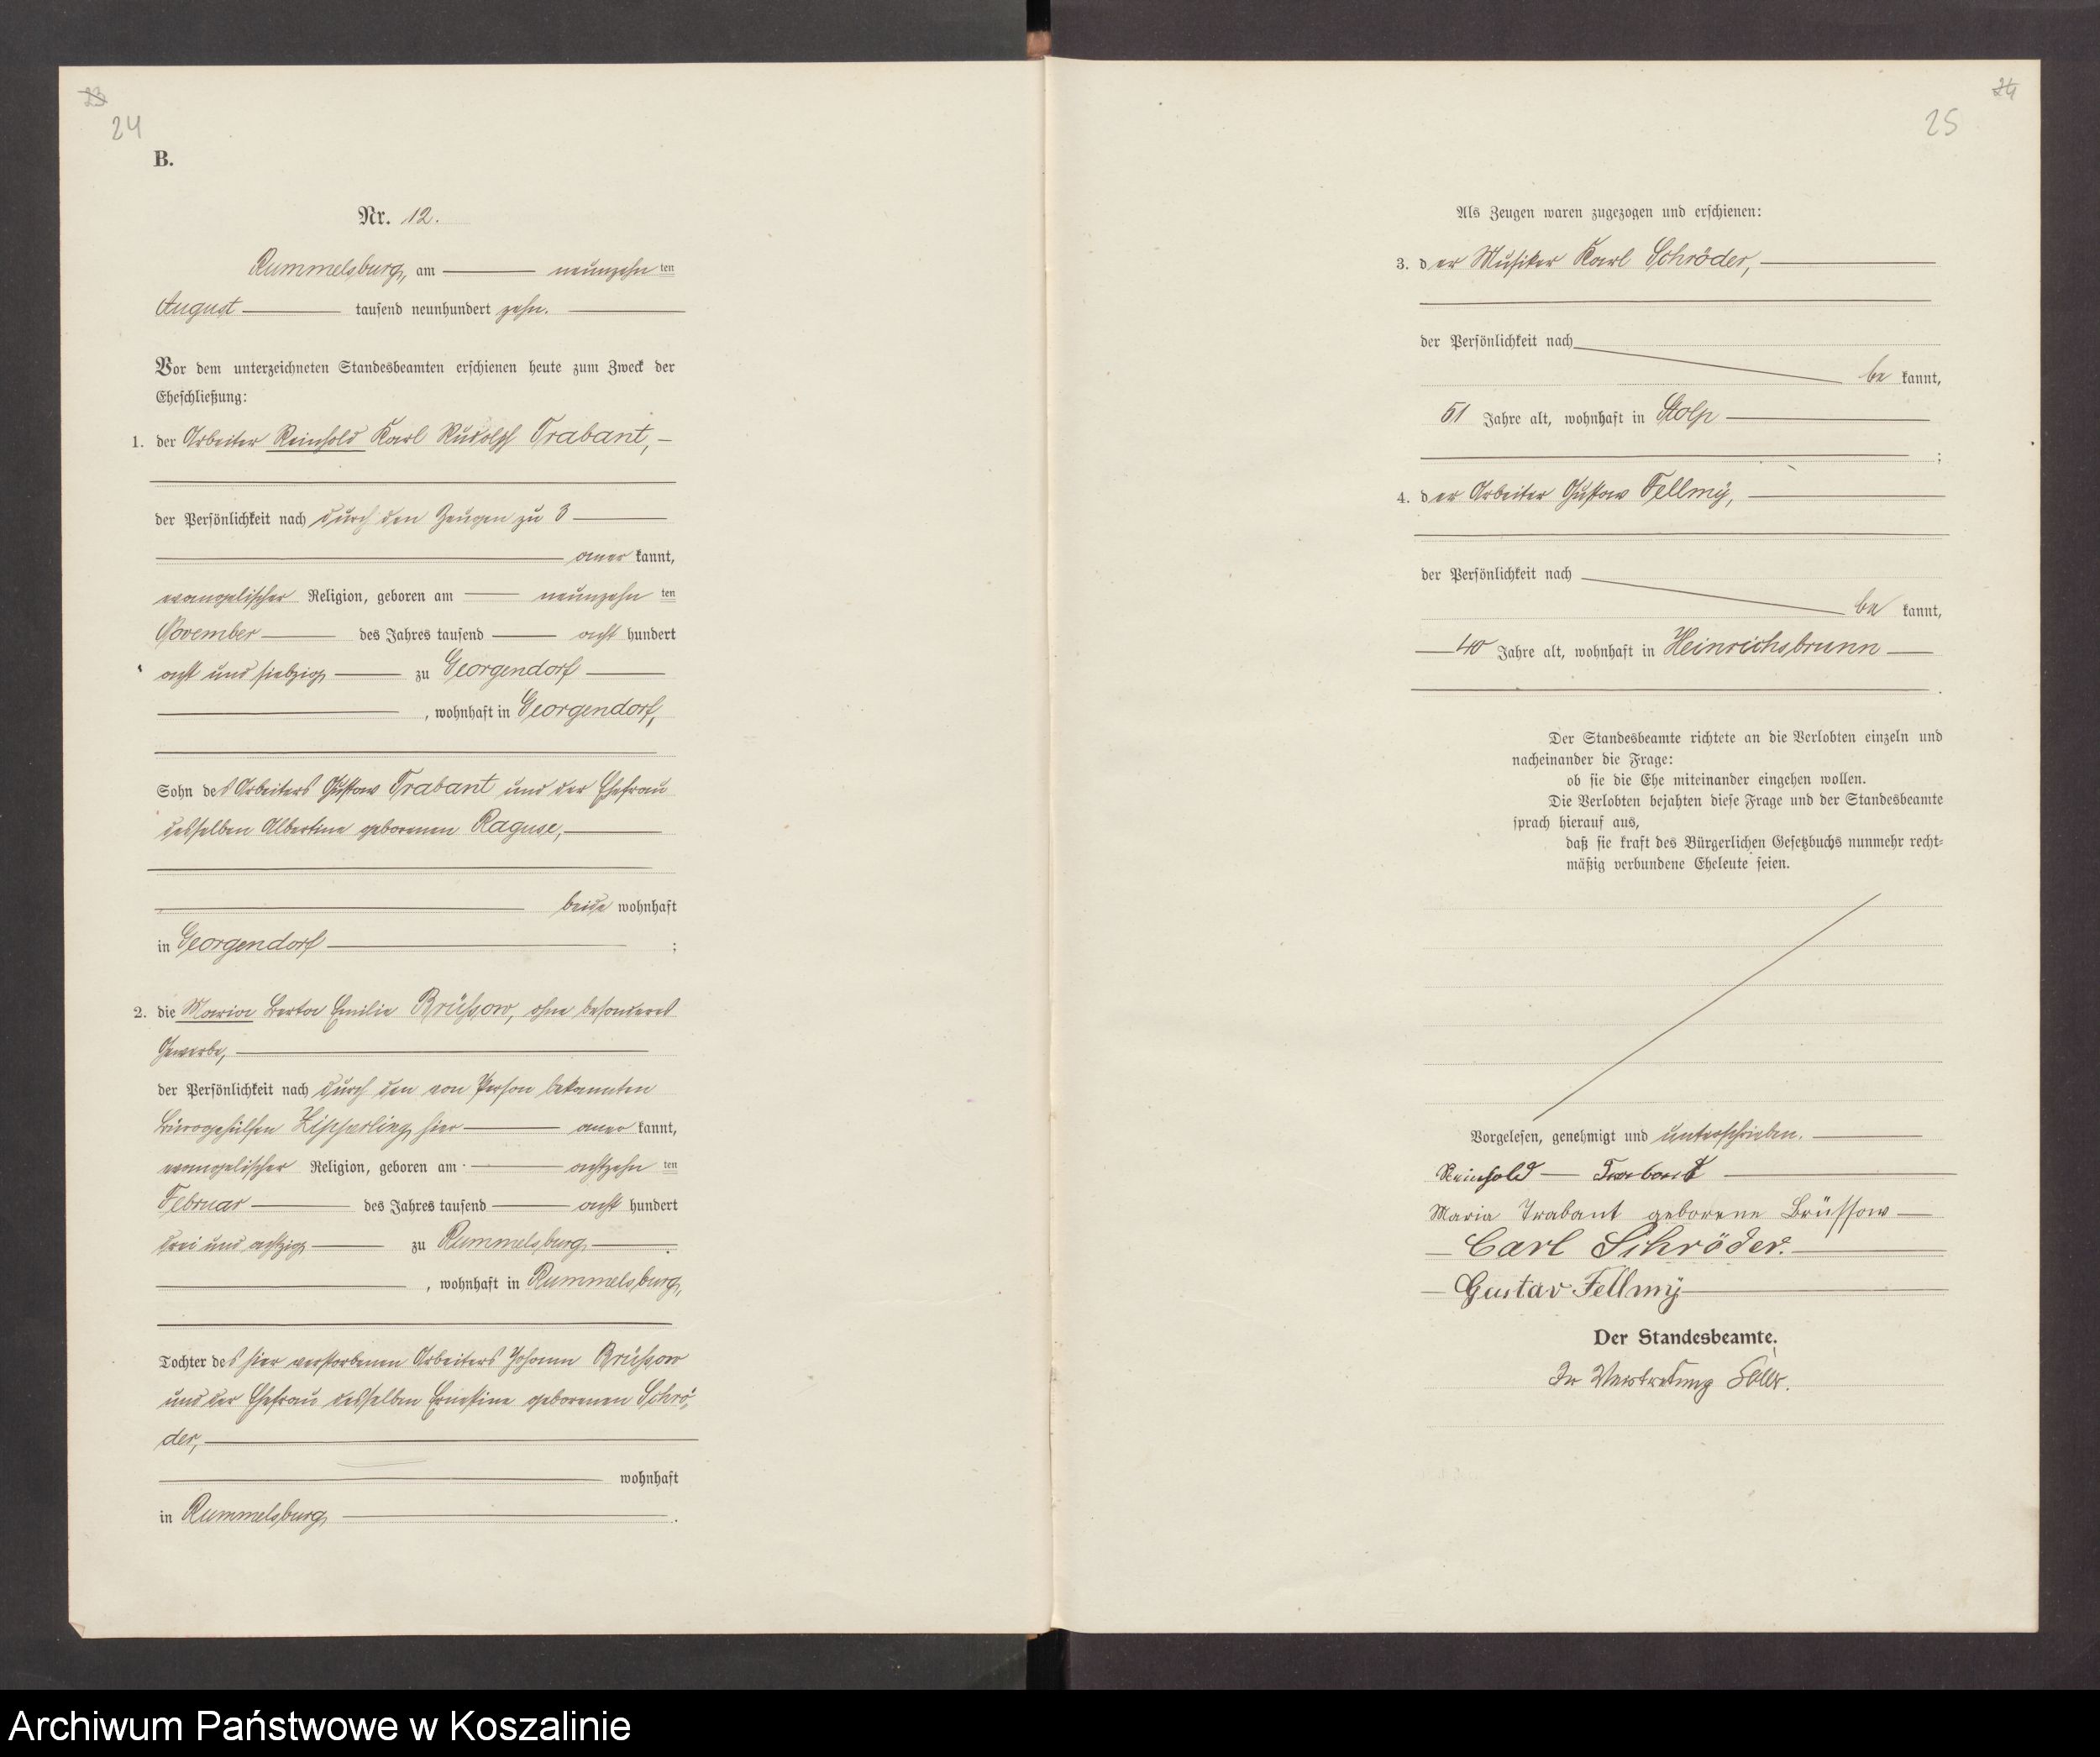 23
24
B.
Nr. 12.
Rummelsburg, am neunzehn ten
August tausend neunhundert zehn.
Vor dem unterzeichneten Standesbeamten erschienen heute zum Zweck der
Eheschließung:
1. der Arbeiter Reinhold Karl Rudolph Trabant,
der Persönlichkeit nach durch den Zeugen zu 3
aner kannt,
evangelischer Religion, geboren am neunzehn ten
November des Jahres tausend acht hundert
acht und siebzig zu Georgendorf
, wohnhaft in Georgendorf,
Sohn des Arbeiters Gustav Trabant und der Ehefrau
desselben Albertine geborenen Raguse,
beide wohnhaft
in Georgendorf ;
2. die Maria Berta Emilie Brüssow, ohne besonderes
Gewerbe,
der Persönlichkeit nach durch den von Person bekannten
Bürogehülfen Zipperling hier aner kannt,
evangelischer Religion, geboren am achtzehn ten
Februar des Jahres tausend acht hundert
drei und achtzig zu Rummelsburg
, wohnhaft in Rummelsburg,
Tochter des hier verstorbenen Arbeiters Johann Brüssow
und der Ehefrau desselben Ernestine geborenen Schrö-
der,
wohnhaft
in Rummelsburg .
24
25
Als Zeugen waren zugezogen und erschienen:
3. der Musiker Karl Schröder,
der Persönlichkeit nach
be kannt,
51 Jahre alt, wohnhaft in Stolp
;
4. der Arbeiter Gustav Fellmÿ,
der Persönlichkeit nach
be kannt,
40 Jahre alt, wohnhaft in Heinrichsbrunn
.
Der Standesbeamte richtete an die Verlobten einzeln und
nacheinander die Frage:
ob sie die Ehe miteinander eingehen wollen.
Die Verlobten bejahten diese Frage und der Standesbeamte
sprach hierauf aus,
daß sie kraft des Bürgerlichen Gesetzbuchs nunmehr recht-
mäßig verbundene Eheleute seien.
Vorgelesen, genehmigt und unterschrieben.
Reinhold Trabant
Maria Trabant geborene Brüssow
Carl Schröder.
Gustav Fellmÿ
Der Standesbeamte.
In Vertretung
Archiwum Państwowe w Koszalinie